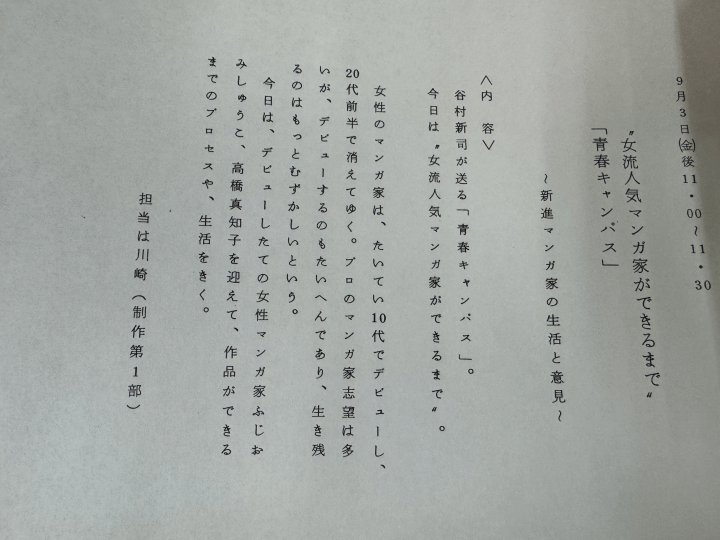 9月3日㈮後11・00～11・30
〝女流人気マンガ家ができるまで〟
「青春キャンパス」
～新進マンガ家の生活と意見～
＜内　容＞
谷村新司が送る「青春キャンパス」。
今日は〝女流人気マンガ家ができるまで〟。
女性のマンガ家は、たいてい10代でデビューし、
20代前半で消えてゆく。プロのマンガ家志望は多
いが、デビューするのもたいへんであり、生き残
るのはもっとむずかしいという。
今日は、デビューしたての女性マンガ家ふじお
みしゅうこ、高橋真知子を迎えて、作品ができる
までのプロセスや、生活をきく。
担当は川崎（制作第1部）